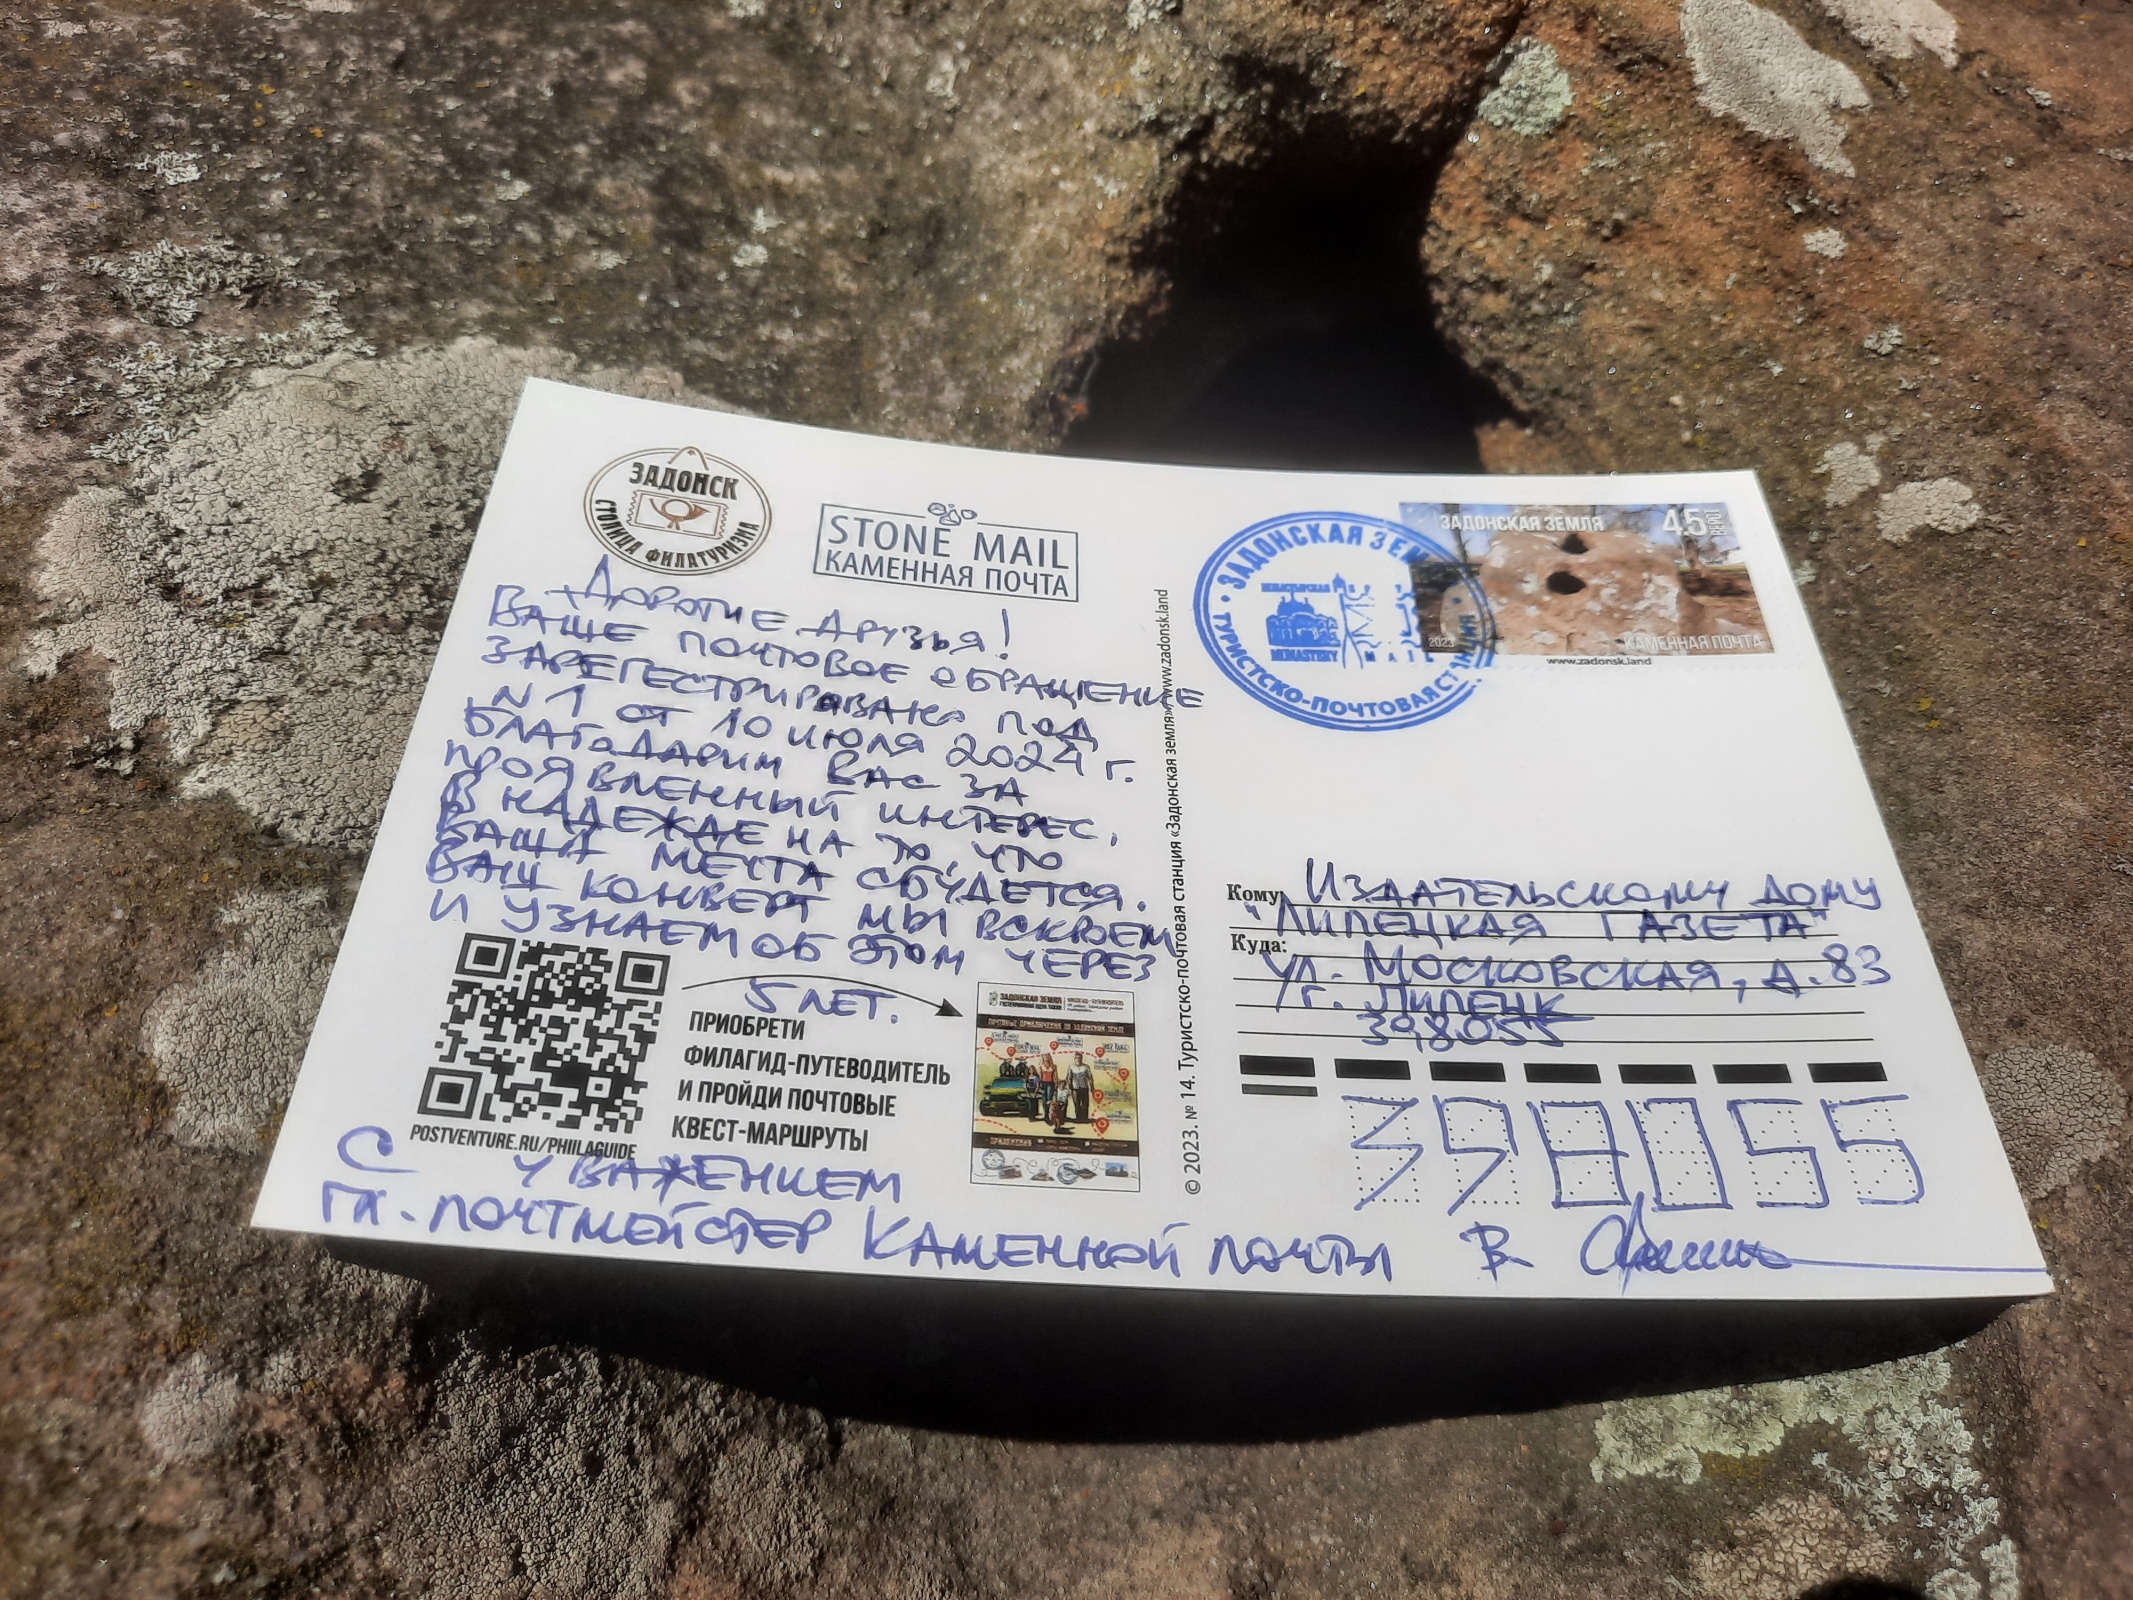 ЗАДОНСК
СТОЛИЦА ФИЛАТУРИЗМА
STONE MAIL
КАМЕННАЯ ПОЧТА
ДОРОГИЕ ДРУЗЬЯ!
ВАШЕ ПОЧТОВОЕ ОБРАЩЕНИЕ
ЗАРЕГЕСТРИРОВАНО ПОД
N 1 ОТ 10 ИЮЛЯ 2024 г.
БЛАГОДАРИМ ВАС ЗА
ПРОЯВЛЕННЫЙ ИНТЕРЕС,
В НАДЕЖДЕ НА ТО, ЧТО
ВАША МЕЧТА СБУДЕТСЯ.
ВАШ КОНВЕРТ МЫ ВСКРОЕМ
И УЗНАЕМ ОБ ЭТОМ ЧЕРЕЗ
5 ЛЕТ.
ПРИОБРЕТИ
ФИЛАГИД-ПУТЕВОДИТЕЛЬ
И ПРОЙДИ ПОЧТОВЫЕ
КВЕСТ-МАРШРУТЫ
POSTVENTURE.RU/PHIILAGUIDE
ЗАДОНСКАЯ ЗЕМЛЯ
ПОЧТОВЫЕ ПРИКЛЮЧЕНИЯ ПО ЗАДОНСКОЙ ЗЕМЛЕ
С УВАЖЕНИЕМ
ГЛ. ПОЧТМЕЙСТЕР КАМЕННОЙ ПОЧТЫ В.
© 2023. № 14. Туристско-почтовая станция «Задонская земля». www.zadonsk.land
ЗАДОНСКАЯ ЗЕМЛЯ
МОНАСТЫРСКАЯ
MONASTERY MAIL
ТУРИСТСКО-ПОЧТОВАЯ СТАНЦИЯ
ЗАДОНСКАЯ ЗЕМЛЯ
45
2023
КАМЕННАЯ ПОЧТА
www.zadonsk.land
Кому ИЗДАТЕЛЬСКОМУ ДОМУ
"ЛИПЕЦКАЯ ГАЗЕТА"
Куда: УЛ. МОСКОВСКАЯ, Д. 83
Г. ЛИПЕЦК
398055
398055